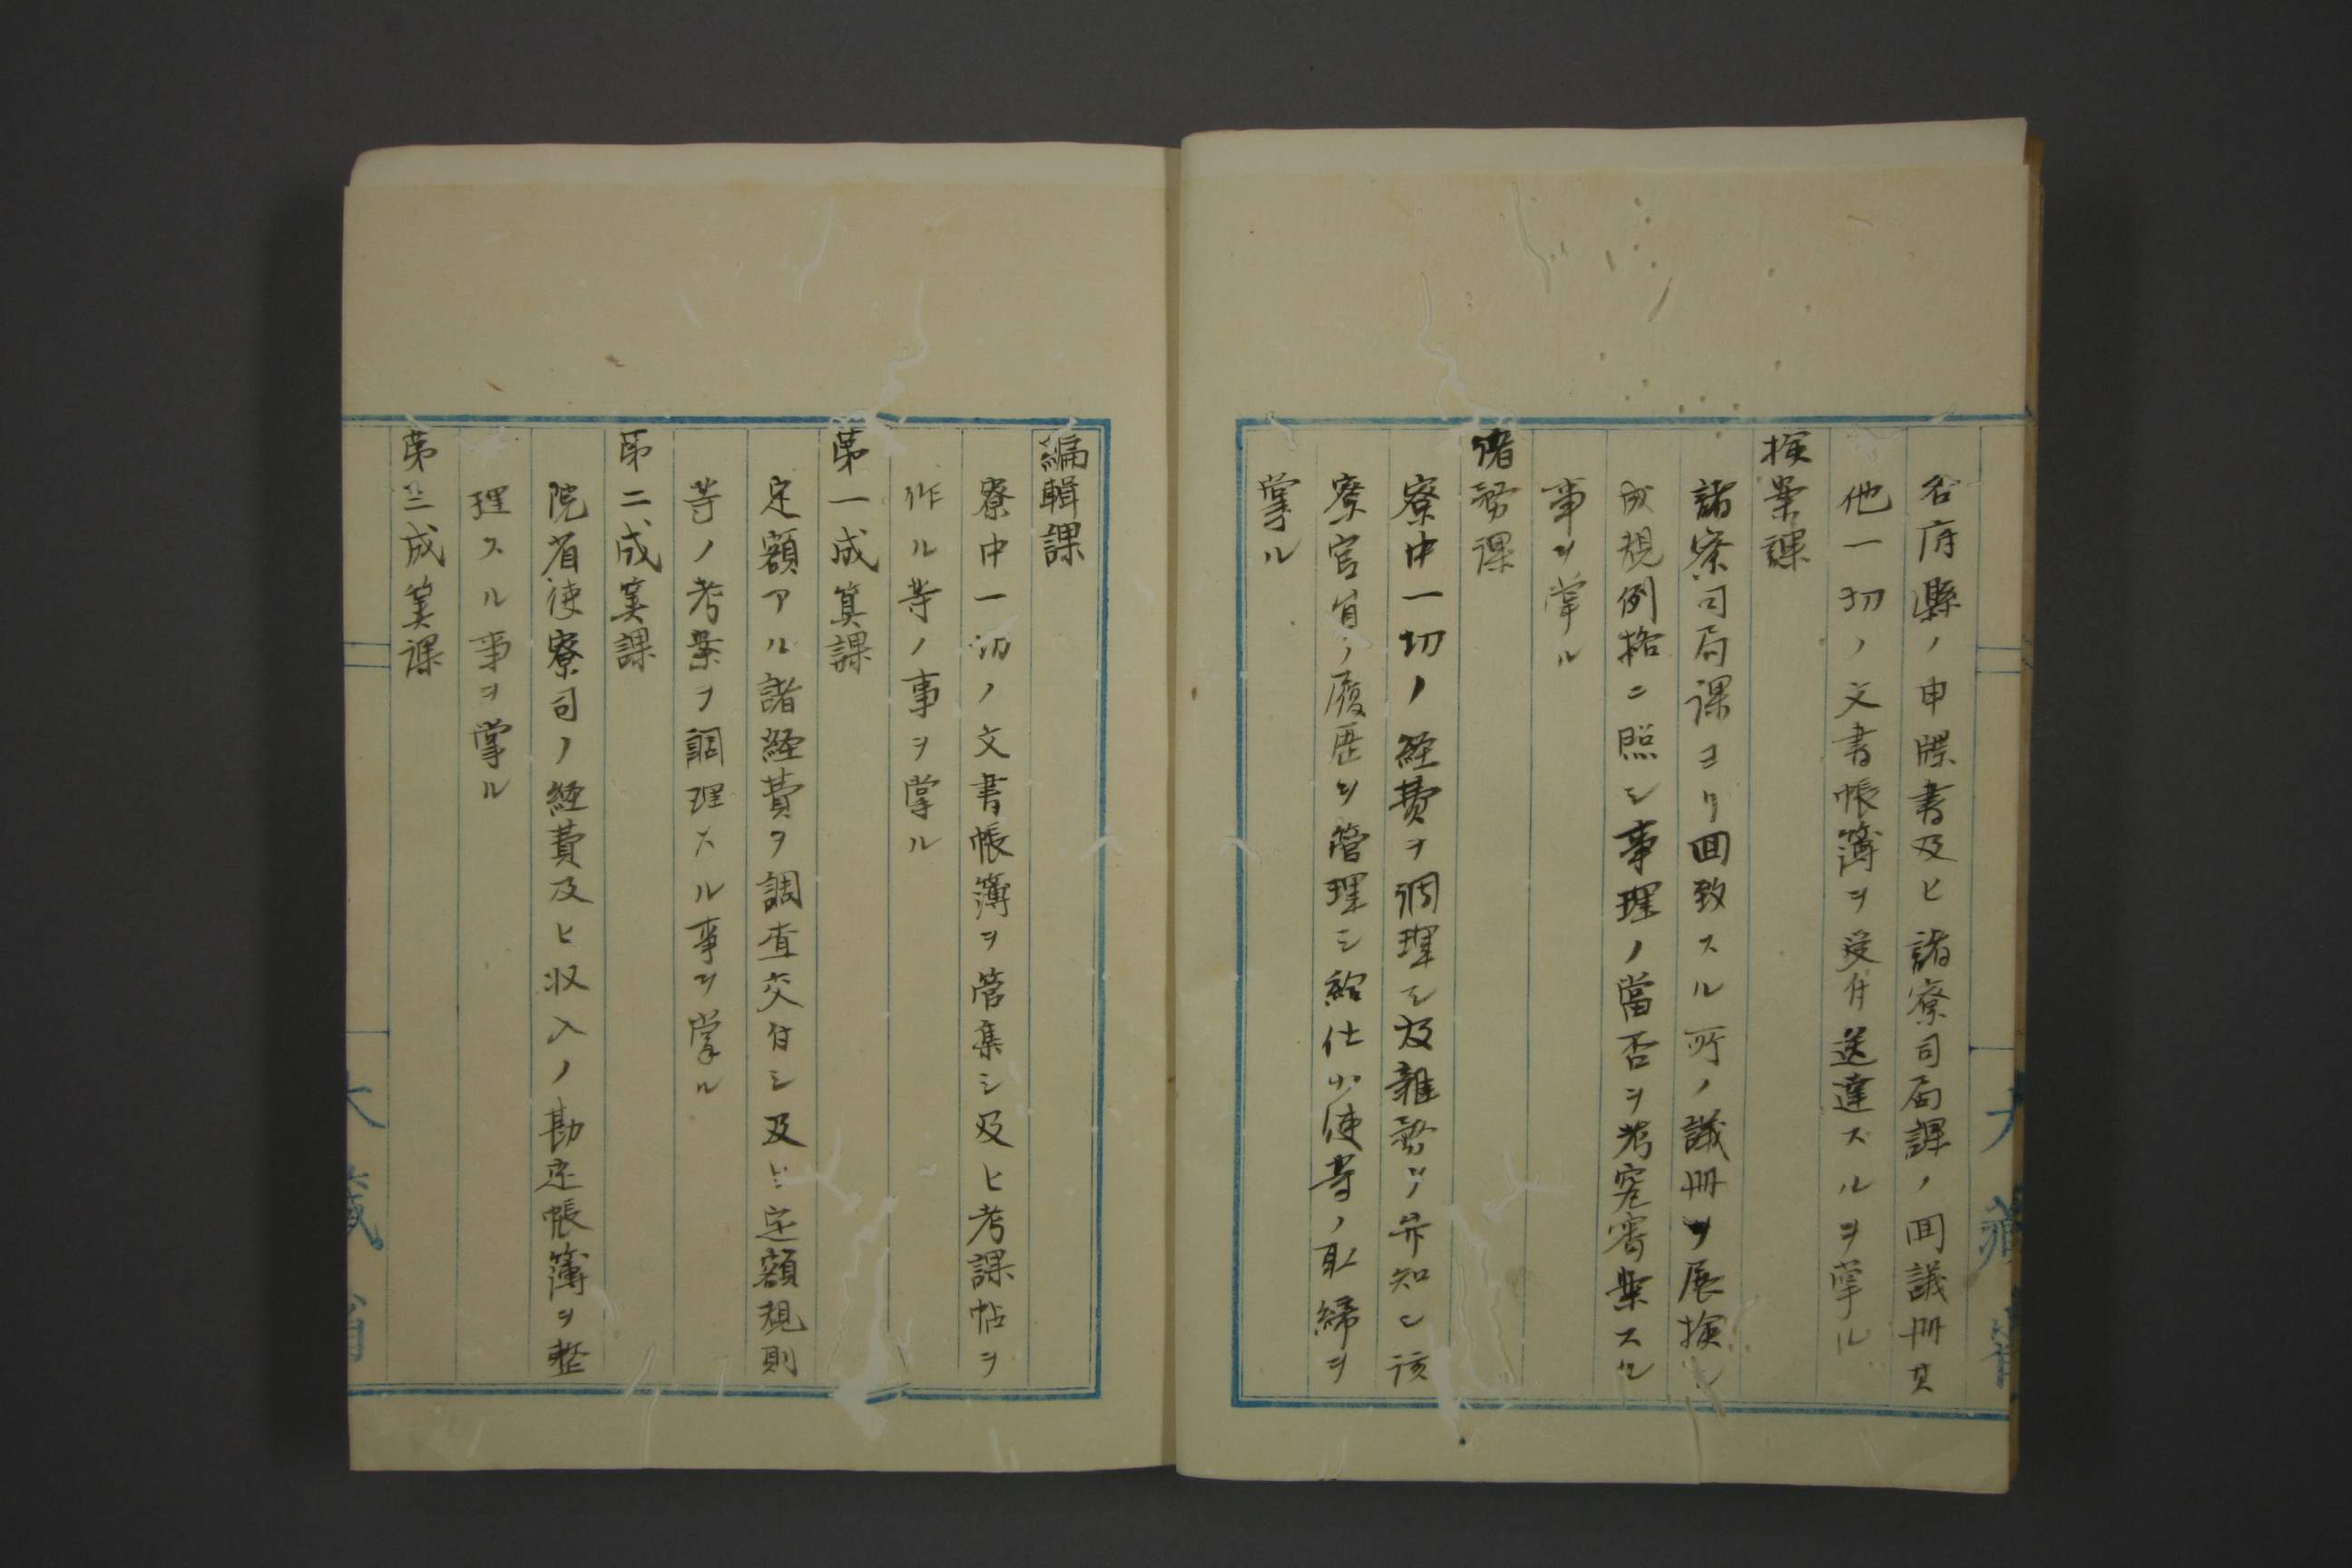 各府縣ノ申牒書及ヒ諸寮司局課ノ回議冊其
他一切ノ文書帳簿ヲ受付送達スルヲ掌ル
検案課
諸寮司局課ヨリ回致スル所ノ議冊ヲ展検シ
成規例格ニ照シ事理ノ當否ヲ考究審案スル
事ヲ掌ル
儲務課
寮中一切ノ経費ヲ調理シ及雑務ヲ弁知シ該
寮官員ノ履歴ヲ管理シ給仕小使等ノ取締ヲ
掌ル
大藏省
編輯課
寮中一切ノ文書帳簿ヲ管集シ及ヒ考課帖ヲ
作ル等ノ事ヲ掌ル
第一成算課
定額アル諸経費ヲ調査交付シ及ヒ定額規則
等ノ考案ヲ調理スル事ヲ掌ル
第二成算課
院省使寮司ノ経費及ヒ収入ノ勘定帳簿ヲ整
理スル事ヲ掌ル
第三成算課
大藏省